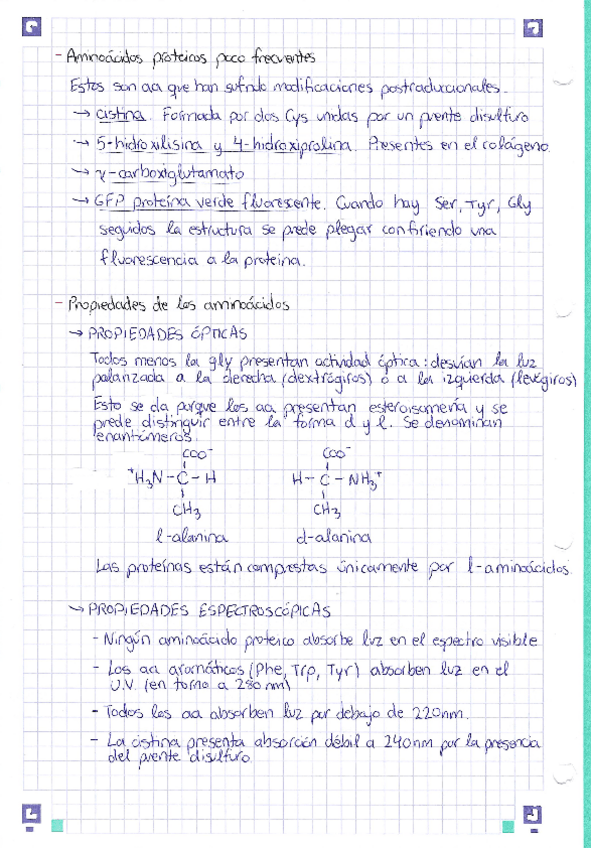 - Aminoácidos proteicos poco frecuentes
Estos son aa que han sufrido modificaciones postraduccionales.
→ cistina. Formada por dos Cys unidas por un puente disulfuro
→ 5-hidroxilisina y 4-hidroxiprolina. Presentes en el colágeno.
→ γ-carboxiglutamato
→ GFP proteína verde fluorescente. Cuando hay Ser, Tyr, Gly
seguidos la estructura se puede plegar confiriendo una
fluorescencia a la proteína.
- Propiedades de los aminoácidos
→ PROPIEDADES ÓPTICAS
Todos menos la gly presentan actividad óptica: desvían la luz
polarizada a la derecha (dextrógiros) o a la izquierda (levógiros)
Esto se da porque los aa presentan esteroisomería y se
puede distinguir entre la forma d y l. Se denominan
enantiómeros.
COO⁻ COO⁻
⁺H₃N - C - H H - C - NH₃⁺
CH₃ CH₃
l-alanina d-alanina
Las proteínas están compuestas únicamente por l-aminoácidos.
→ PROPIEDADES ESPECTROSCÓPICAS
- Ningún aminoácido proteico absorbe luz en el espectro visible
- Los aa aromáticos (Phe, Trp, Tyr) absorben luz en el
U.V (en torno a 280 nm)
- Todos los aa absorben luz por debajo de 220nm.
- La cistina presenta absorción débil a 240nm por la presencia
del puente disulfuro.